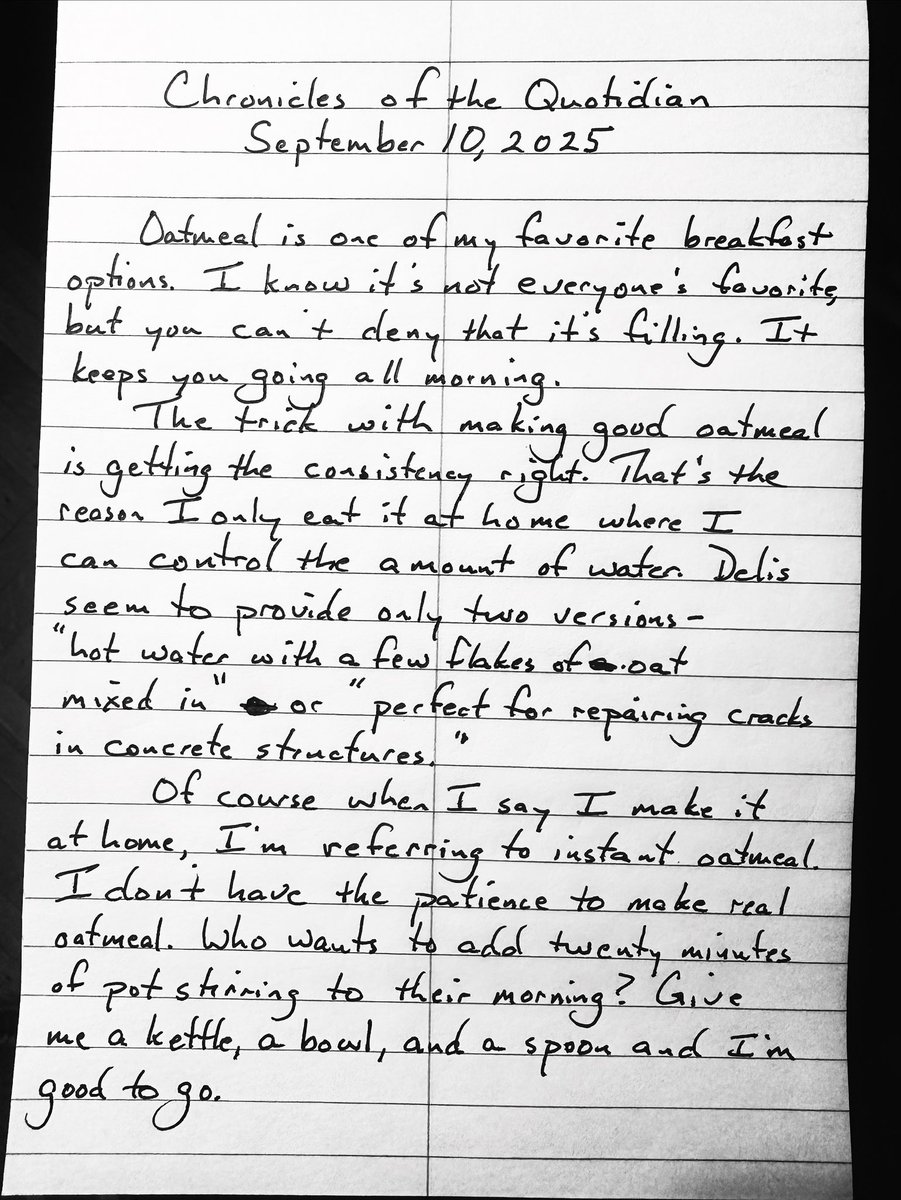 Chronicles of the Quotidian
September 10, 2025
Oatmeal is one of my favorite breakfast
options. I know it's not everyone's favorite,
but you can't deny that it's filling. It
keeps you going all morning.
The trick with making good oatmeal
is getting the consistency right. That's the
reason I only eat it at home where I
can control the amount of water. Delis
seem to provide only two versions-
"hot water with a few flakes of oat
mixed in" or "perfect for repairing cracks
in concrete structures."
Of course when I say I make it
at home, I'm referring to instant oatmeal.
I don't have the patience to make real
oatmeal. Who wants to add twenty minutes
of pot stirring to their morning? Give
me a kettle, a bowl, and a spoon and I'm
good to go.